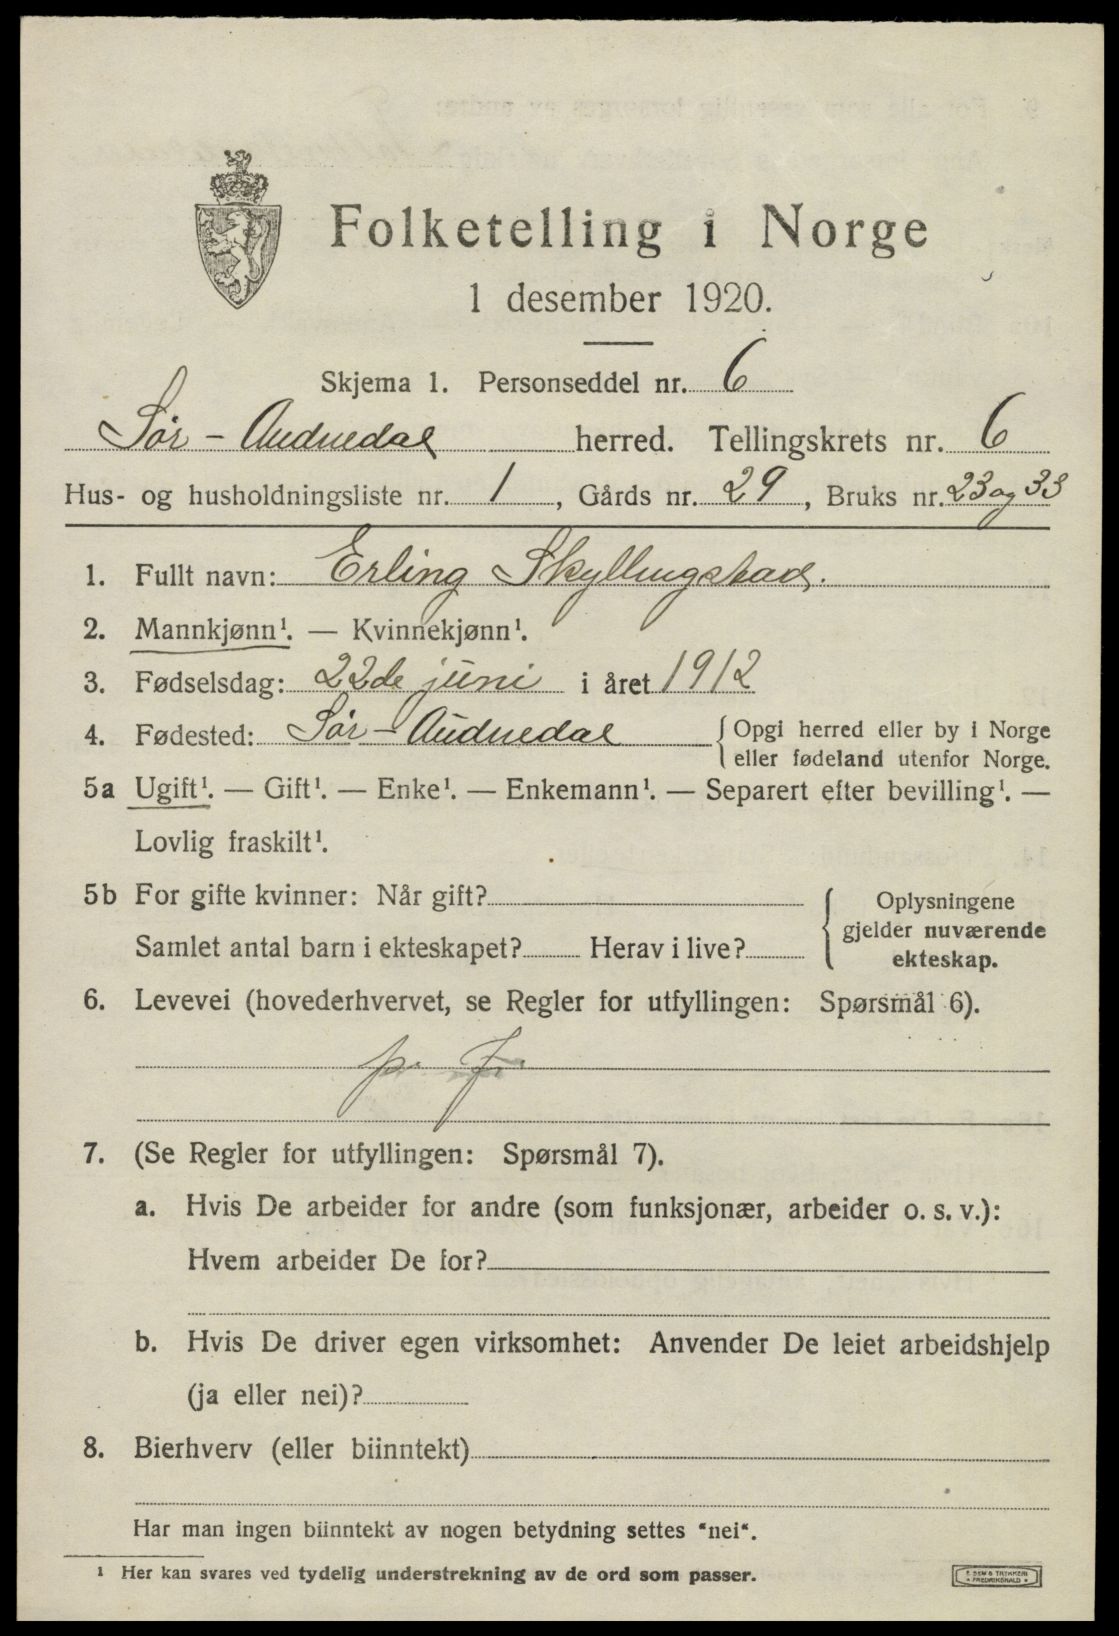 Folketelling i Norge
1 desember 1920.
Skjema 1. Personseddel nr. 6
Sør-Audnedal herred. Tellingskrets nr. 6
Hus- og husholdningsliste nr. 1, Gårds nr. 29, Bruks nr. 23 og 33
1. Fullt navn: Erling Skyllingstad.
2. Mannkjønn¹. — Kvinnekjønn¹.
3. Fødselsdag: 22de juni i året 1912
4. Fødested: Sør-Audnedal {Opgi herred eller by i Norge
eller fødeland utenfor Norge.
5a Ugift¹. — Gift¹. — Enke¹. — Enkemann¹. — Separert efter bevilling¹. —
Lovlig fraskilt¹.
5b For gifte kvinner: Når gift?
Samlet antal barn i ekteskapet? Herav i live?
{Oplysningene
gjelder nuværende
ekteskap.
6. Levevei (hovederhvervet, se Regler for utfyllingen: Spørsmål 6).
7. (Se Regler for utfyllingen: Spørsmål 7).
a. Hvis De arbeider for andre (som funksjonær, arbeider o. s. v.):
Hvem arbeider De for?
b. Hvis De driver egen virksomhet: Anvender De leiet arbeidshjelp
(ja eller nei)?
8. Bierhverv (eller biinntekt)
Har man ingen biinntekt av nogen betydning settes "nei".
¹ Her kan svares ved tydelig understrekning av de ord som passer.